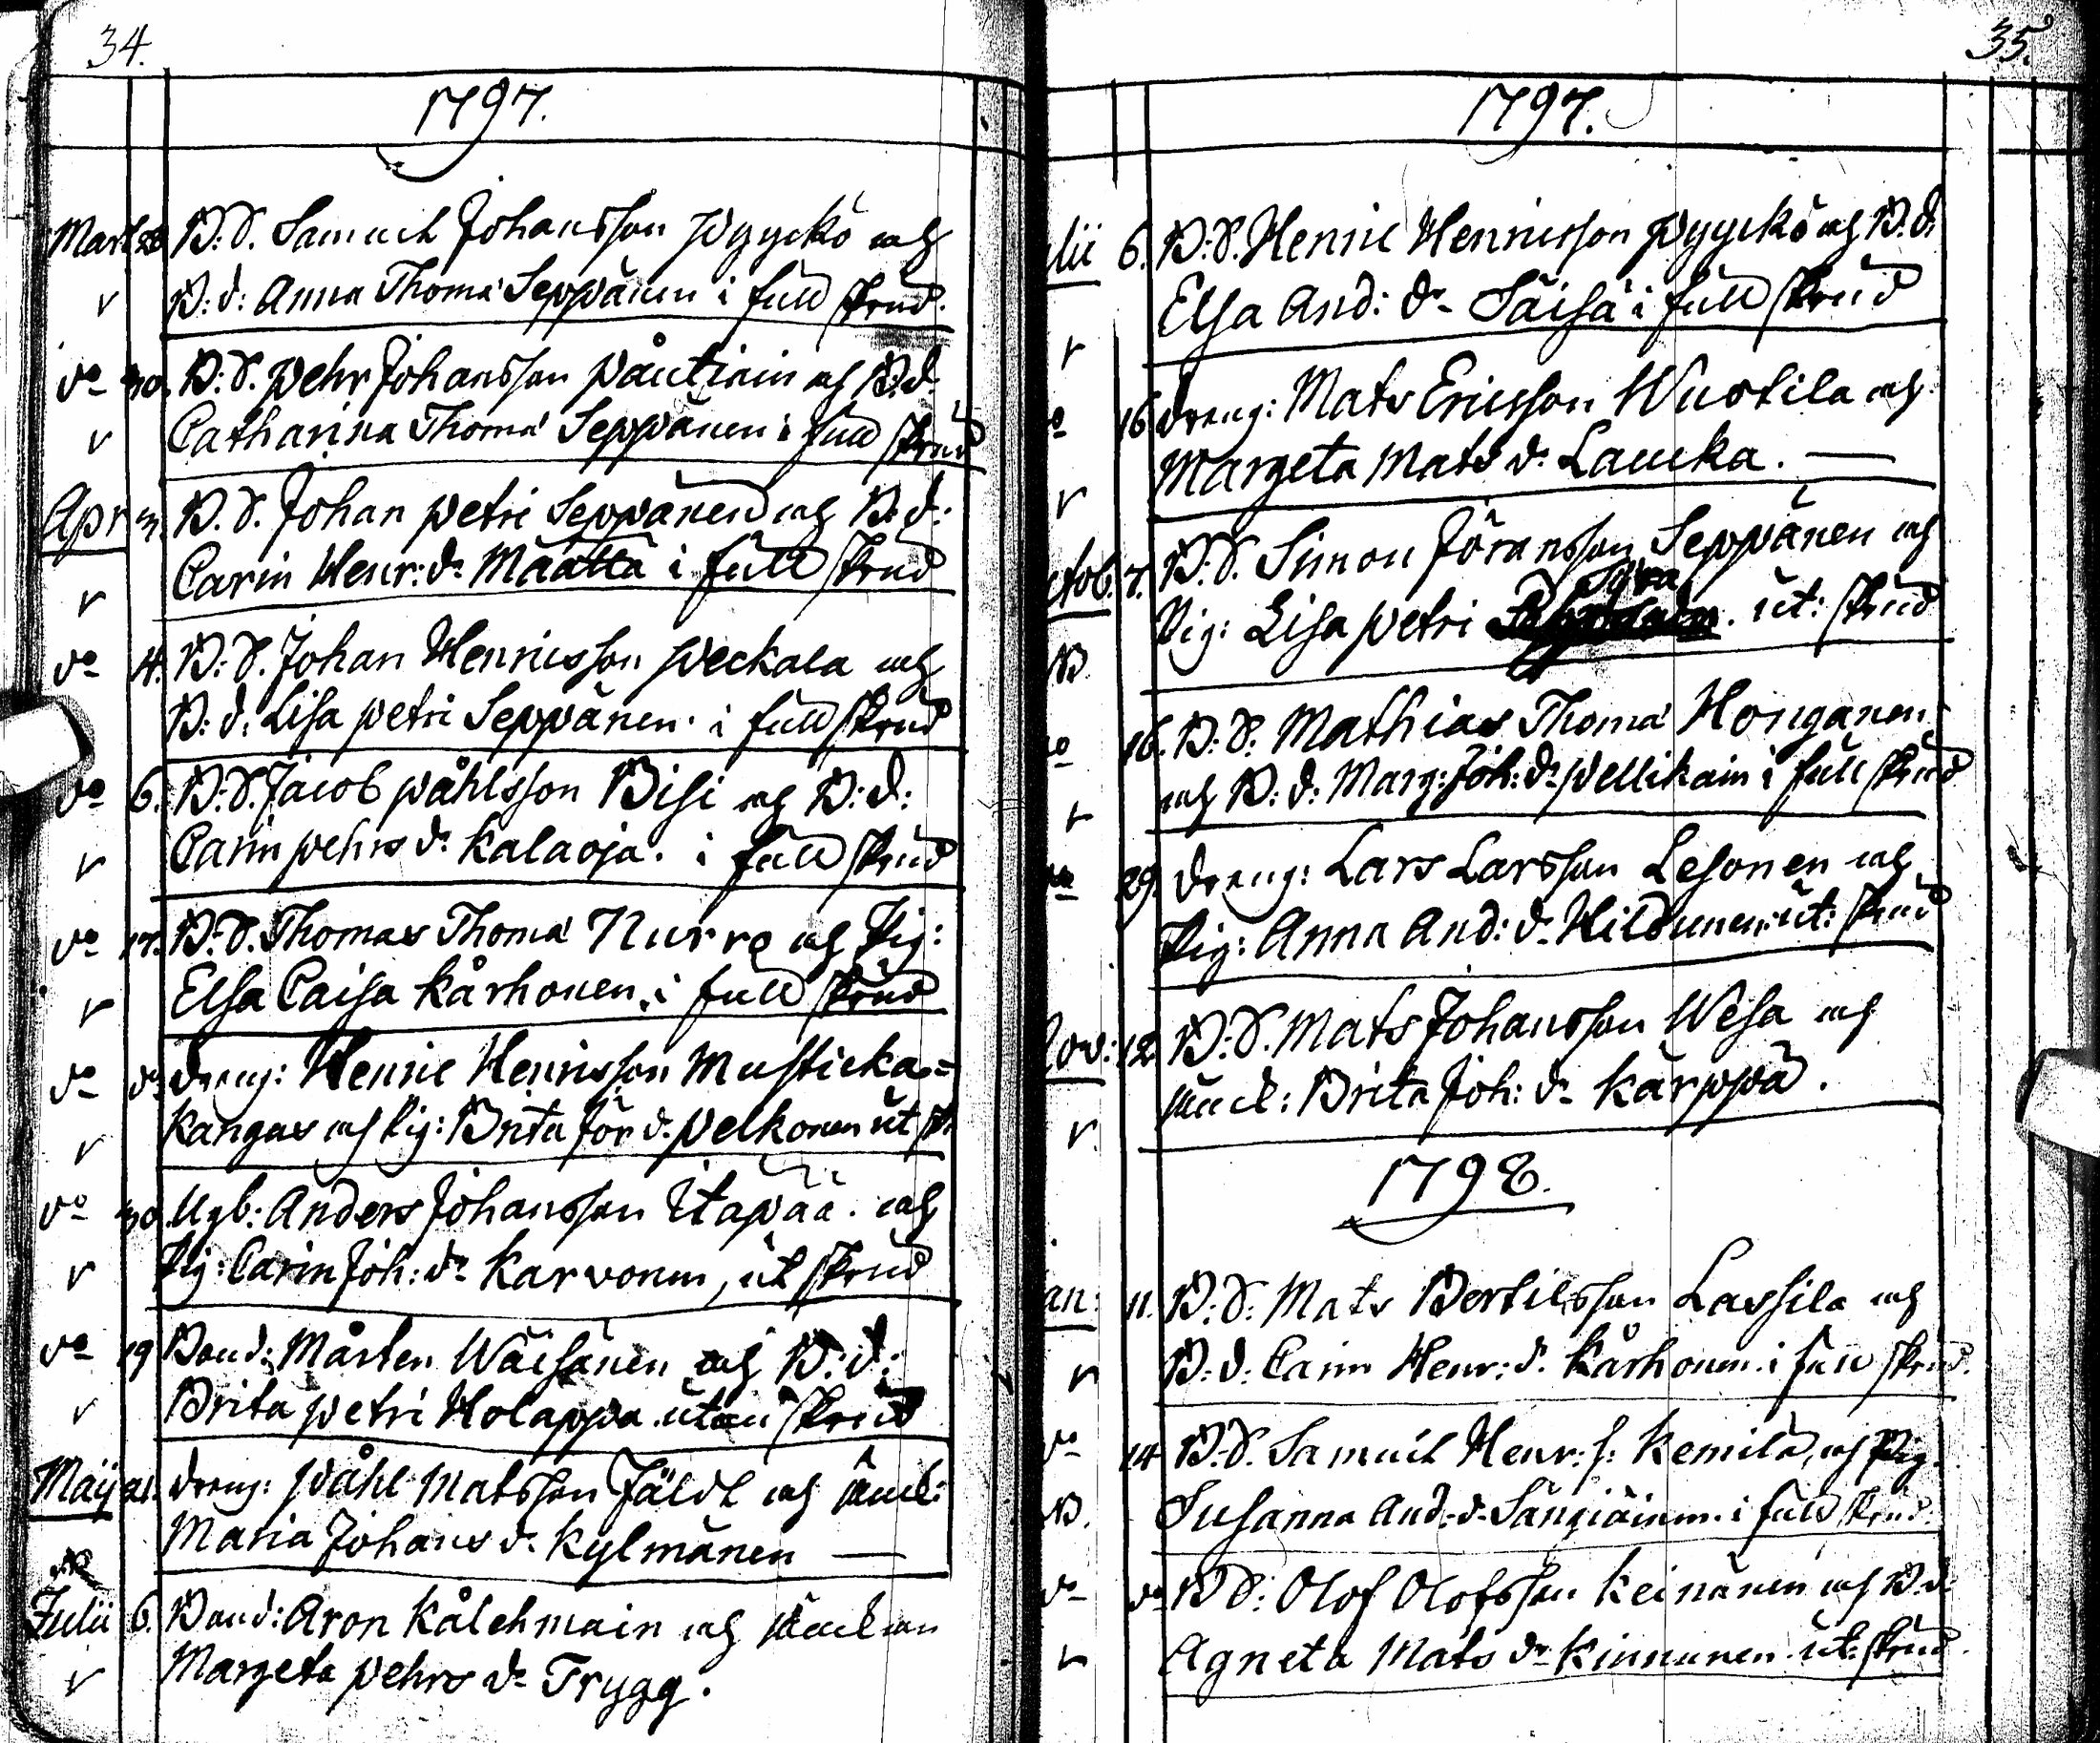 34.
1797.
Mart 28 B: S. Samuel Johansson Pyyckö och
v B: d: Anna Thomæ Seppänen i full skrud.
do 30. B: S. Pehr Johansson Påutiain och B: d:
v Catharina Thomæ Seppänen i full skrud
Apr 3. B. S. Johan Petri Seppänen och B: d:
v Carin Henr: dr Määttä i full skrud
do 4. B: S. Johan Henricsson Peckala och
B: d: Lisa Petri Seppänen. i full skrud
do 6. B: S. Jacob Påhlsson Bisi och B: d:
v Carin Pehrs dr Kalaoja. i full skrud
do 17. B: S. Thomas Thomæ Nurro och Pig:
v Elsa Caisa Kårhonen. i full skrud
do do dreng: Henric Henricsson Musticka=
v kangas och Pig: Brita Jör d. Pelkonen ut sk
do 30. Ugb: Anders Johansson Itäpää. och
v Pig: Carin Joh: dr Karvonen, ut skrud
do 19 Bond: Mårten Wäisänen och B: d:
v Brita Petri Holappa utan skrud
Maij 21. dreng: Påhl Matsson Jäldt och Änck:
Maria Johans dr Kylmänen —
Julii 6. Bond: Aron Kålehmain och Änckan
v Margeta Pehrs dr Trygg.
35.
1797.
lii 6. B: S. Henric Henricsson Pyyckö och B: d:
v Elsa And: dr Säisä i full skrud
o 16 dreng: Mats Ericsson Wuotila och
v Margeta Mats dr Laucka. —
ctob. 7. B: S. Simon Göransson Seppänen och
B Pig: Lisa Petri Syra . ut: skrud
o 16. B: S. Mathias Thomæ Honganen
v och B: d: Marg: Joh: dr Pellikain i full skrud
do 29. dreng: Lars Larsson Lesonen och
Pig: Anna And: dr Hildunen: ut: skrud
Nov: 12. B: S. Mats Johansson Wesa och
v Änck: Brita Joh: dr Kärppä.
1798.
an: 11. B: S: Mats Bertilsson Lassila och
v B: d: Carin Henr: dr Kårhonen i full skrud.
do 14 B: S. Samuel Henr: s: Kemilä, och Pig.
B. Susanna And: d. Sängiäinen. i full skrud.
do do B S: Olof Olofsson Keinänen och B. d:
v Agneta Mats dr Kinnunen ut: skrud.